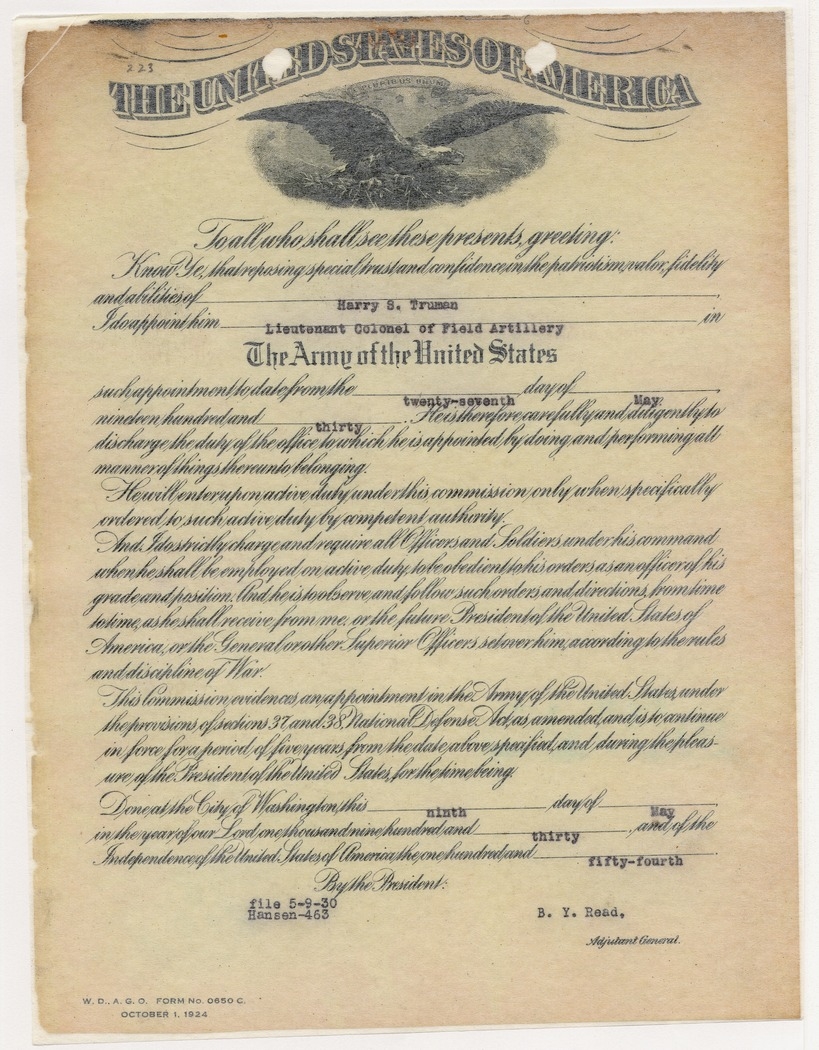 223
THE UNITED STATES OF AMERICA
E PLURIBUS UNUM
To all who shall see these presents, greeting:
Know Ye, that reposing special trust and confidence in the patriotism, valor, fidelity
and abilities of Harry S. Truman ,
I do appoint him Lieutenant Colonel of Field Artillery in
The Army of the United States
such appointment to date from the twenty-seventh day of May ,
nineteen hundred and thirty . He is therefore carefully and diligently to
discharge the duty of the office to which he is appointed, by doing and performing all
manner of things thereunto belonging.
He will enter upon active duty under this commission only when specifically
ordered to such active duty by competent authority.
And I do strictly charge and require all Officers and Soldiers under his command
when he shall be employed on active duty, to be obedient to his orders as an officer of his
grade and position. And he is to observe and follow such orders and directions, from time
to time, as he shall receive from me, or the future President of the United States of
America, or the General or other Superior Officers set over him, according to the rules
and discipline of War.
This Commission evidences an appointment in the Army of the United States, under
the provisions of sections 37 and 38, National Defense Act, as amended, and is to continue
in force for a period of five years from the date above specified, and during the pleas-
ure of the President of the United States, for the time being.
Done at the City of Washington, this ninth day of May
in the year of our Lord one thousand nine hundred and thirty , and of the
Independence of the United States of America the one hundred and fifty-fourth
By the President:
file 5-9-30
Hansen-463
B. Y. Read,
Adjutant General.
W. D., A. G. O. FORM No. 0650 C.
OCTOBER 1, 1924